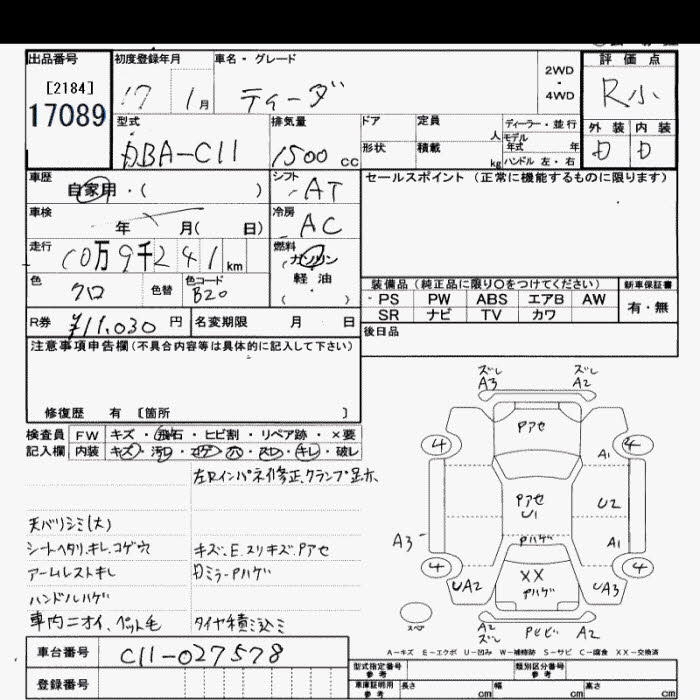 出品番号 初度登録年月 車名・グレード 2WD・4WD 評価点
[2184]
17089
17 1月 ティーダ R小
型式 排気量 ドア 定員 人 ディーラー・並行 外装 内装
DBA-C11 1500cc 形状 積載 kg モデル年式 年 D D
ハンドル 左・右
車歴 自家用・( ) シフト AT セールスポイント(正常に機能するものに限ります)
車検 年 月( 日) 冷房 AC
走行 10万9千241km 燃料 ガソリン
軽油
( ・ )
色 クロ 色替 色コード B20
装備品(純正品に限り○をつけてください) 新車保証書
・PS PW ABS エアB AW 有・無
SR ナビ TV カワ
R券 ¥11,030円 名変期限 月 日 後日品
注意事項申告欄(不具合内容等は具体的に記入して下さい)
修復歴 有 [箇所 ]
検査員 FW キズ・飛石・ヒビ割・リペア跡・×要
記入欄 内装 キズ・汚レ・コゲ・穴・スレ・キレ・破レ
左Rインパネイ修正、クランプ足ホ
天バリシミ(大)
シートヘタリ、キレ、コゲ穴 キズ、E、スリキズ、Pアセ
アームレストキレ Dミラー Pハゲ
ハンドルハゲ
車内ニオイ、ペット毛 タイヤ積ミ込ミ
ズレ ズレ
A3 A2
Pアセ
4 4
A1
Pアセ
U1
U2
A3 Pハゲ A1
4 4
UA2 XX UA3
Pハゲ
スペ
A2 Pビビ A2
ズレ
A-キズ E-エクボ U-凹み W-補修跡 S-サビ C-腐食 XX-交換済
車台番号 C11-027578
登録番号
型式指定番号 参考 類別区分番号 参考
車庫証明用 参考 長さ cm 幅 cm 高さ cm